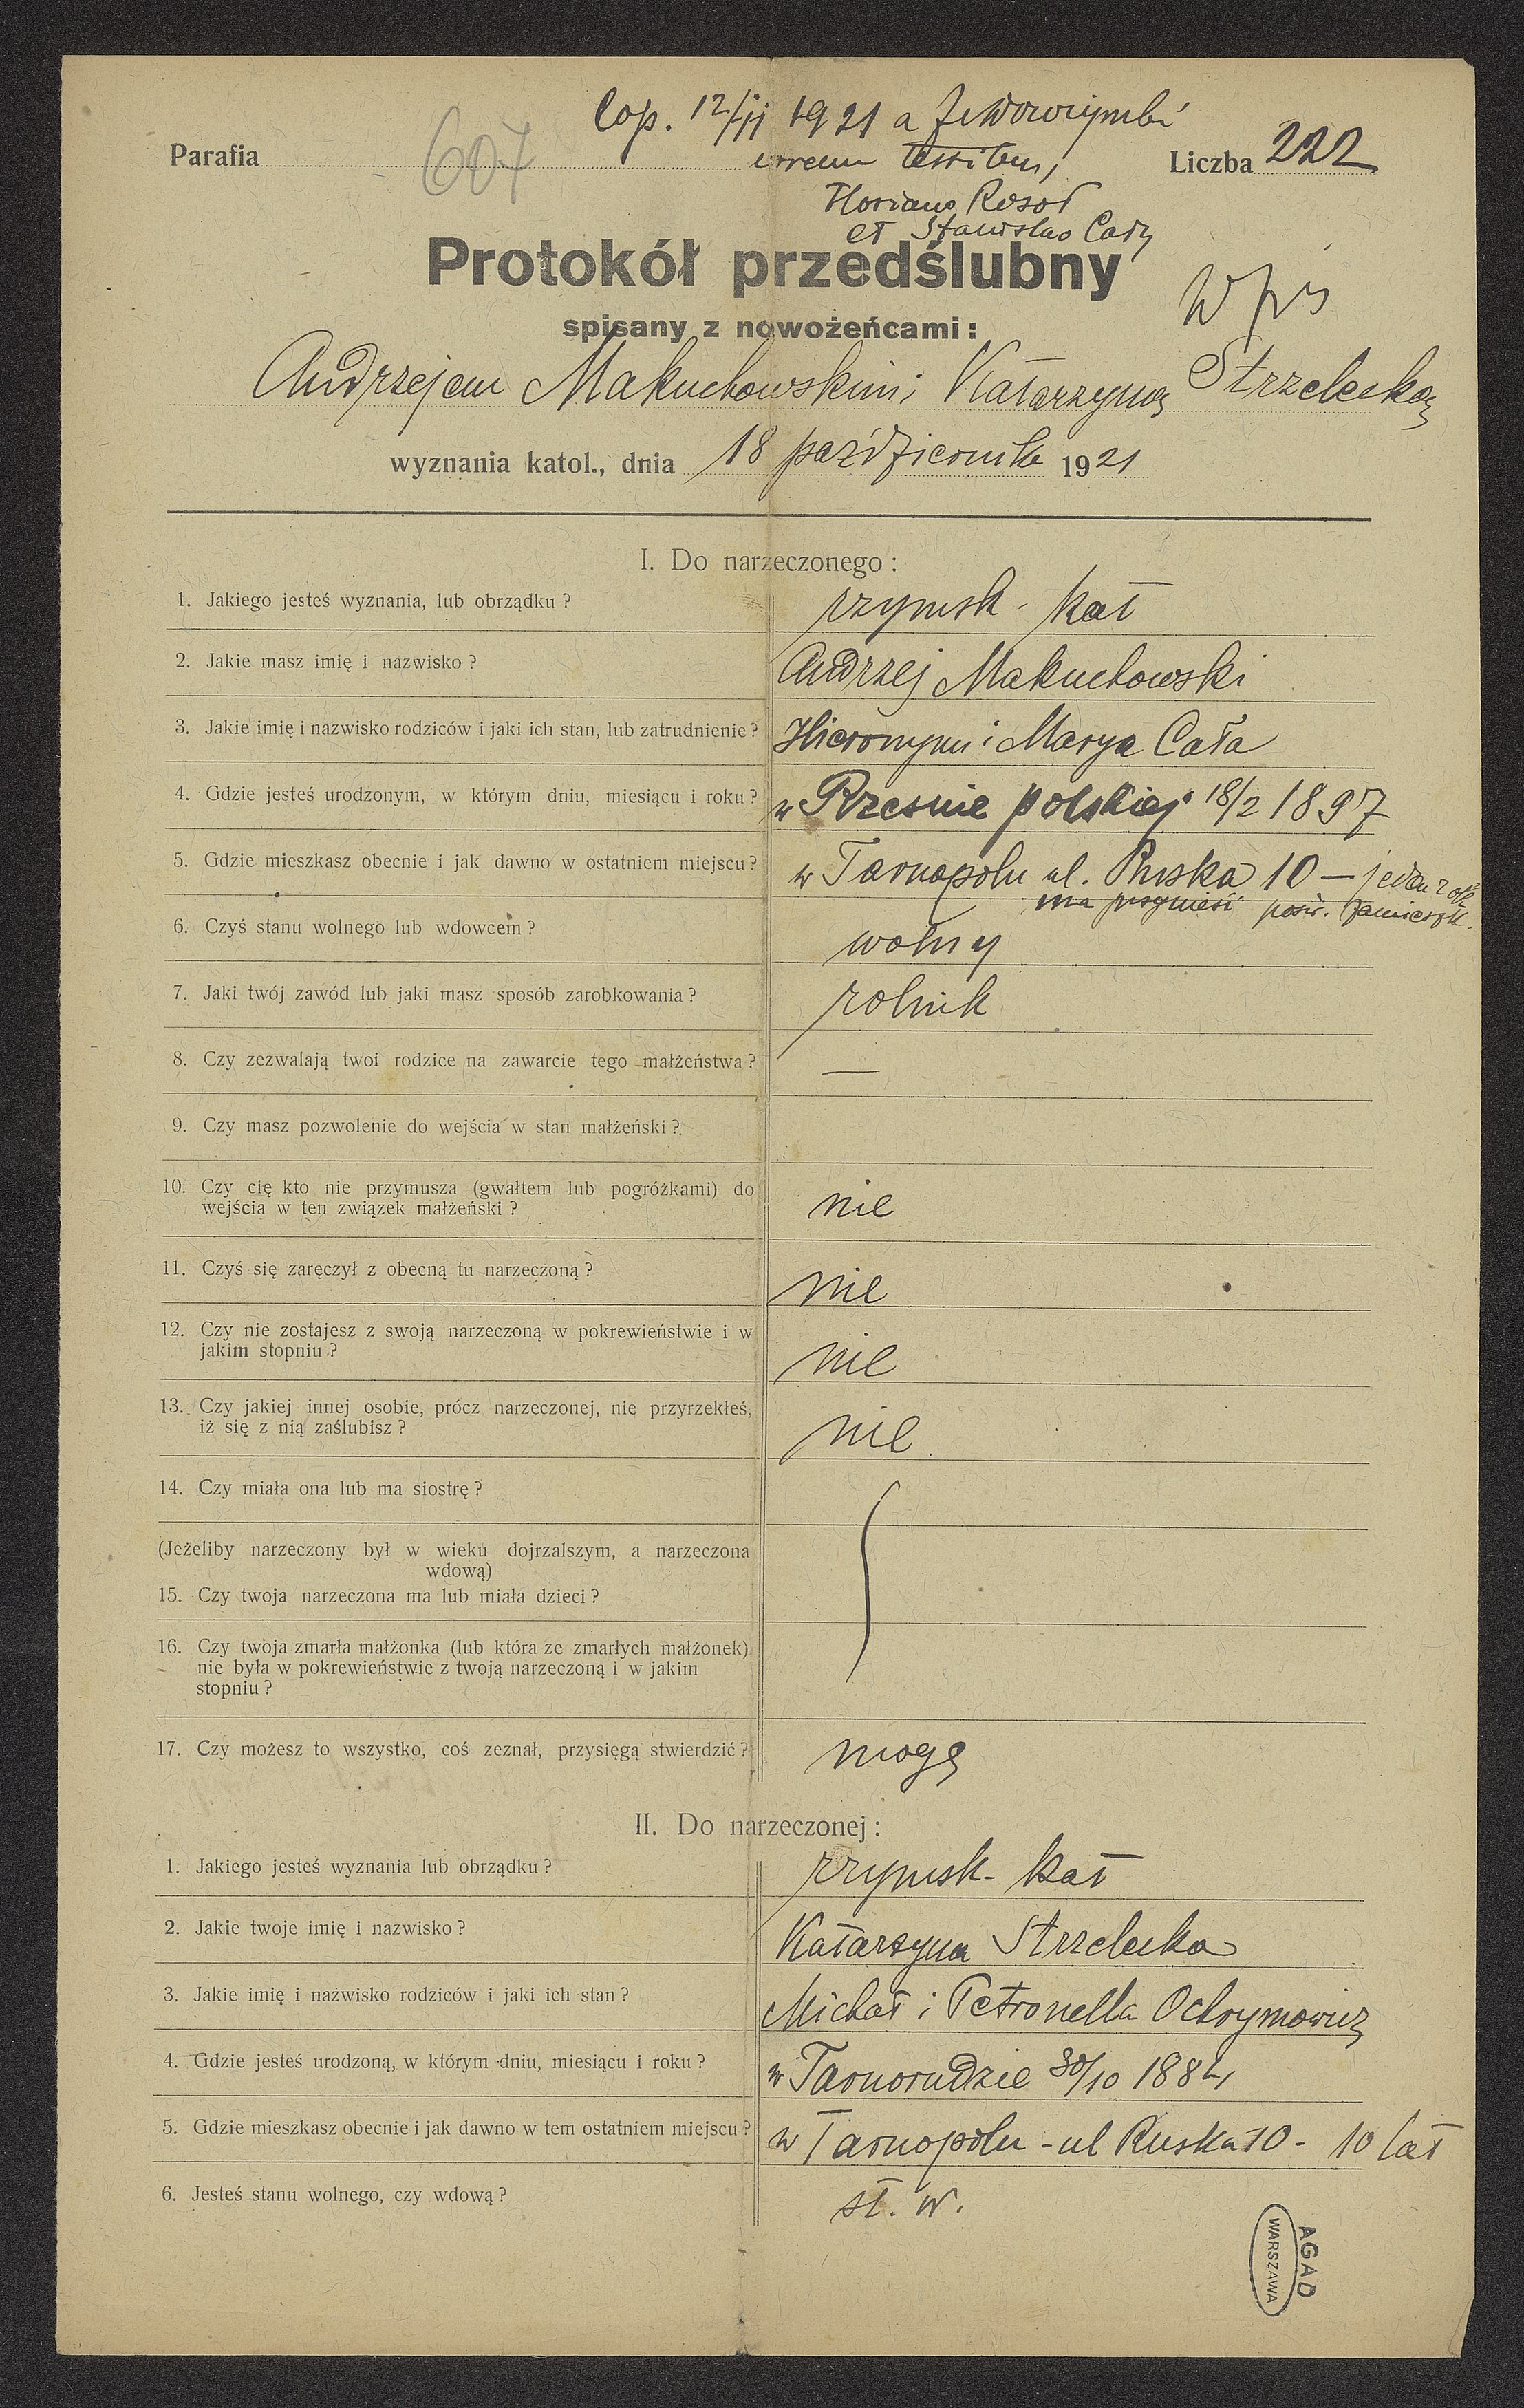 Cop. 12/11 1921 a
Parafia 607 coram testibus, Liczba 222
Floriano Rosoł
et Stanislao Cały
Protokół przedślubny
Wpis
spisany z nowożeńcami:
Andrzejem Makuchowskim i Katarzyną Strzelecką
wyznania katol., dnia 18 października 1921
I. Do narzeczonego:
1. Jakiego jesteś wyznania, lub obrządku? rzymsk. kat
2. Jakie masz imię i nazwisko? Andrzej Makuchowski
3. Jakie imię i nazwisko rodziców i jaki ich stan, lub zatrudnienie? Hieronym i Marya Cała
4. Gdzie jesteś urodzonym, w którym dniu, miesiącu i roku? w Rzesnie polskiej 18/2 1897
5. Gdzie mieszkasz obecnie i jak dawno w ostatniem miejscu? w Tarnopolu ul. Ruska 10 — jeden rok
ma przynieść pośw. zamieszk.
6. Czyś stanu wolnego lub wdowcem? wolny
7. Jaki twój zawód lub jaki masz sposób zarobkowania? rolnik
8. Czy zezwalają twoi rodzice na zawarcie tego małżeństwa? —
9. Czy masz pozwolenie do wejścia w stan małżeński?
10. Czy cię kto nie przymusza (gwałtem lub pogróżkami) do
wejścia w ten związek małżeński? nie
11. Czyś się zaręczył z obecną tu narzeczoną? nie
12. Czy nie zostajesz z swoją narzeczoną w pokrewieństwie i w
jakim stopniu? nie
13. Czy jakiej innej osobie, prócz narzeczonej, nie przyrzekłeś,
iż się z nią zaślubisz? nie
14. Czy miała ona lub ma siostrę?
(Jeżeliby narzeczony był w wieku dojrzalszym, a narzeczona
wdową)
15. Czy twoja narzeczona ma lub miała dzieci?
16. Czy twoja zmarła małżonka (lub która ze zmarłych małżonek)
nie była w pokrewieństwie z twoją narzeczoną i w jakim
stopniu?
17. Czy możesz to wszystko, coś zeznał, przysięgą stwierdzić? mogę
II. Do narzeczonej:
1. Jakiego jesteś wyznania lub obrządku? rzymsk- kat
2. Jakie twoje imię i nazwisko? Katarzyna Strzelecka
3. Jakie imię i nazwisko rodziców i jaki ich stan? Michał i Petronella Ochrymowicz
4. Gdzie jesteś urodzoną, w którym dniu, miesiącu i roku? w Tarnorudzie 30/10 1884
5. Gdzie mieszkasz obecnie i jak dawno w tem ostatniem miejscu? w Tarnopolu - ul Ruska 10 - 10 lat
6. Jesteś stanu wolnego, czy wdową? st. w.
AGAD
WARSZAWA